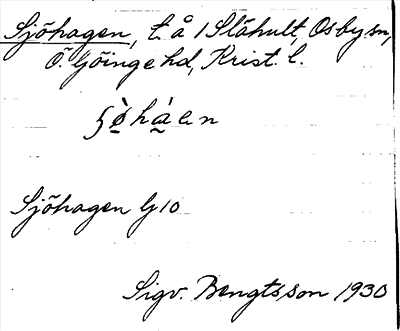 Sjöhagen, t. å 1 Slähult, Osby sn,
Ö. Göinge hd, Krist. l.
ʂø̀hàen
Sjöhagen G 10
Sigv. Bengtsson 1930